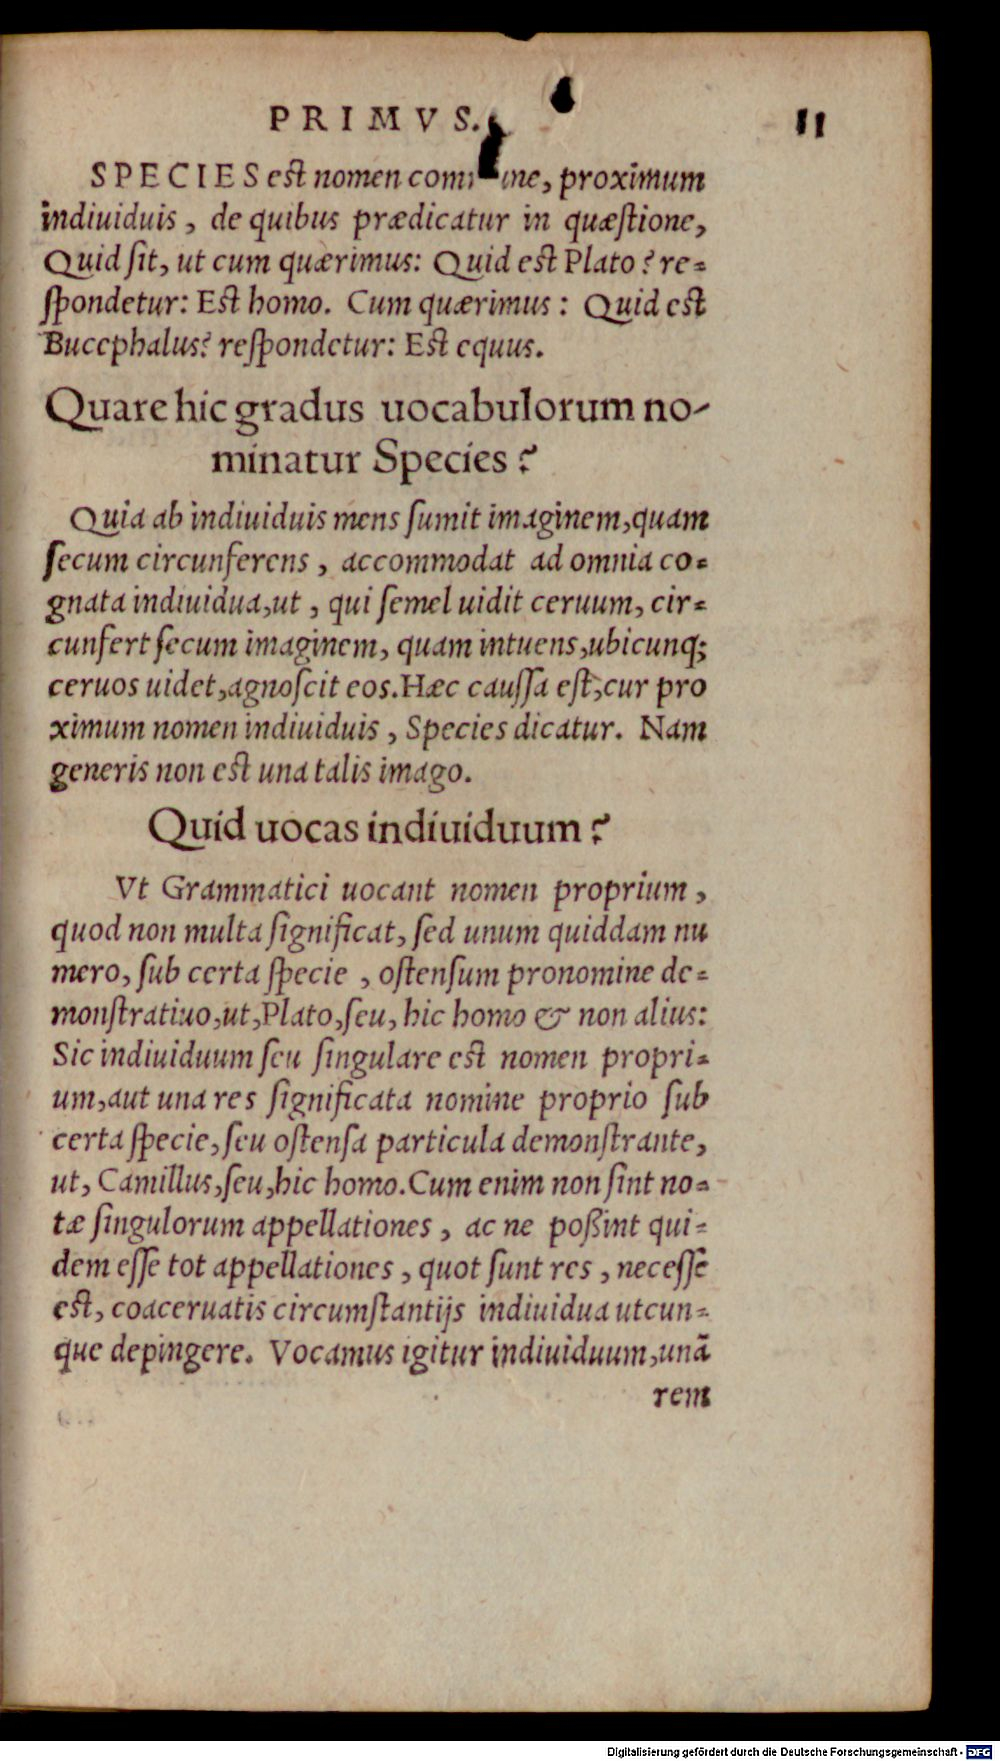 PRIMVS. 11
SPECIES est nomen commune, proximum
indiuiduis, de quibus prædicatur in quæstione,
Quid ſit, ut cum quærimus: Quid est Plato? re-
ſpondetur: Est homo. Cum quærimus: Quid est
Bucephalus? reſpondetur: Est equus.
Quare hic gradus uocabulorum no-
minatur Species?
Quia ab indiuiduis mens ſumit imaginem, quam
ſecum circunferens, accommodat ad omnia co-
gnata indiuidua, ut, qui ſemel uidit ceruum, cir-
cunfert ſecum imaginem, quam intuens, ubicunq;
ceruos uidet, agnoſcit eos. Hæc cauſſa eſt, cur pro
ximum nomen indiuiduis, Species dicatur. Nam
generis non est una talis imago.
Quid uocas indiuiduum?
Vt Grammatici uocant nomen proprium,
quod non multa ſignificat, ſed unum quiddam nu
mero, ſub certa ſpecie, oſtenſum pronomine de-
monſtratiuo, ut, Plato, ſeu, hic homo & non alius:
Sic indiuiduum ſeu ſingulare est nomen propri-
um, aut una res ſignificata nomine proprio ſub
certa ſpecie, ſeu oſtenſa particula demonſtrante,
ut, Camillus, ſeu, hic homo. Cum enim non ſint no-
tæ ſingulorum appellationes, ac ne poßint qui-
dem eſſe tot appellationes, quot ſunt res, neceſſe
est, coaceruatis circumſtantijs indiuidua utcun-
que depingere. Vocamus igitur indiuiduum, unã
rem
Digitalisierung gefördert durch die Deutsche Forschungsgemeinschaft - DFG